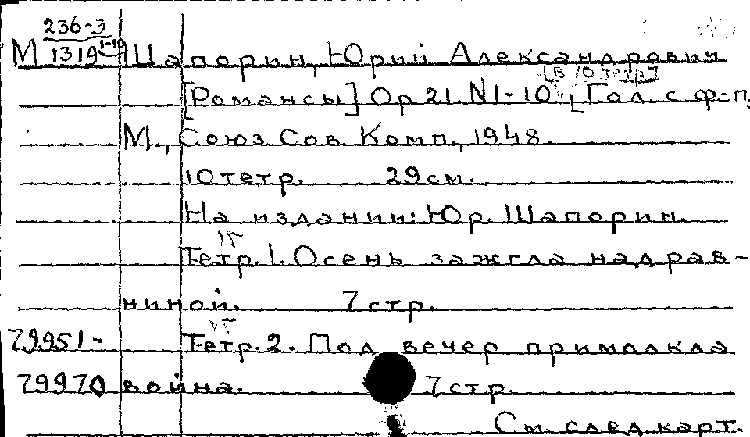 236-3
М 1319 1-10 Шапорин, Юрий Александрович
[в 10 тетр]
[Романсы] Op.21. N1-10. [Гол. с ф-п.
М., Союз Сов. Комп., 1948.
10 тетр. 29 см.
На издании: Юр. Шапорин.
Тетр. 1. Осень зажгла над рав-
ниной. 7 стр.
79951- Тетр. 2. Под вечер примолкла
79970 война. 7 стр.
См. след. карт.